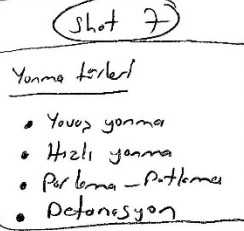 Shot 7
Yanma türleri
• Yavaş yanma
• Hızlı yanma
• Parlama - Patlama
• Detonasyon